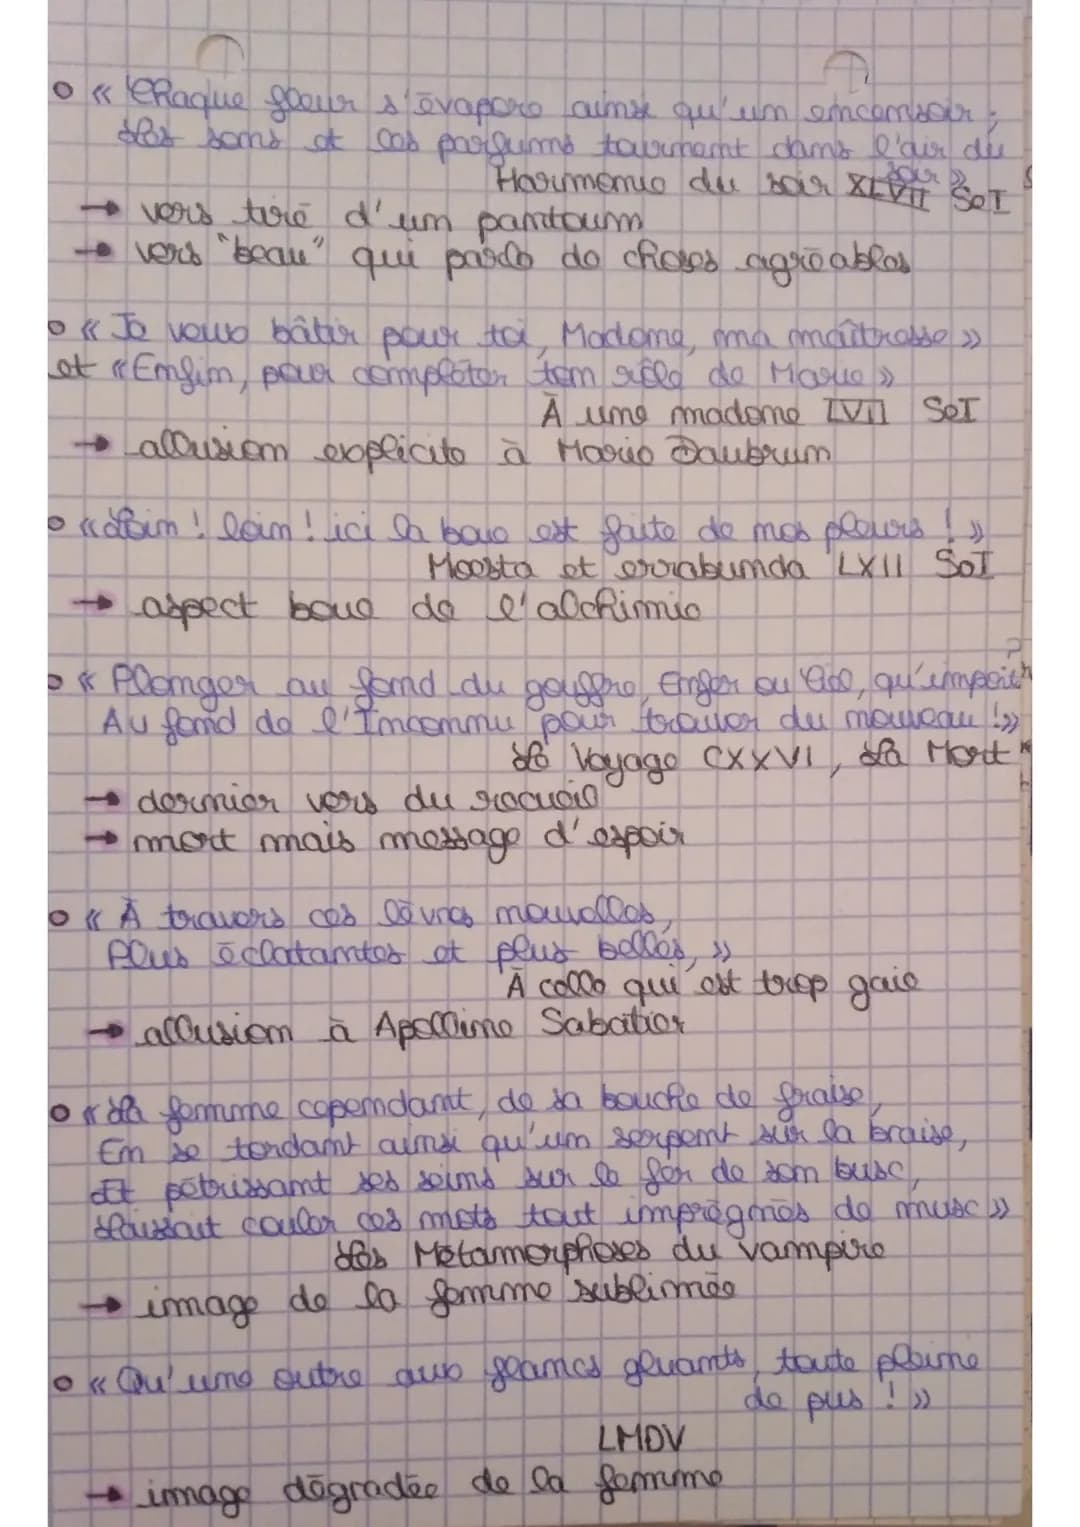 « Chaque fleur s'évapore ainsi qu'un encensoir ;
Les sons et les parfums tournent dans l'air du
soir »
Harmonie du soir XLVII SeI
→ vers tiré d'un pantoum
→ vers "beau" qui parle de choses agréables
« Je veux bâtir pour toi, Madame, ma maîtresse »
et « Enfin, pour compléter ton rôle de Marie »
À une madone LVII SeI
→ allusion explicite à Marie Daubrun
« Loin ! loin ! ici la boue est faite de nos pleurs ! »
Moesta et errabunda LXII SeI
→ aspect boue de l'alchimie
« Plonger au fond du gouffre, Enfer ou Ciel, qu'importe ?
Au fond de l'Inconnu pour trouver du nouveau ! »
Le Voyage CXXVI, La Mort
→ dernier vers du recueil
→ mort mais message d'espoir
« À travers ces lèvres nouvelles,
Plus éclatantes et plus belles, »
À celle qui est trop gaie
→ allusion à Apolline Sabatier
« La femme cependant, de sa bouche de fraise,
En se tordant ainsi qu'un serpent sur la braise,
Et pétrissant ses seins sur le fer de son busc,
Laissait couler ces mots tout imprégnés de musc »
Les Métamorphoses du vampire
→ image de la femme sublimée
« Qu'une outre aux flancs gluants, toute pleine
de pus ! »
LMDV
→ image dégradée de la femme